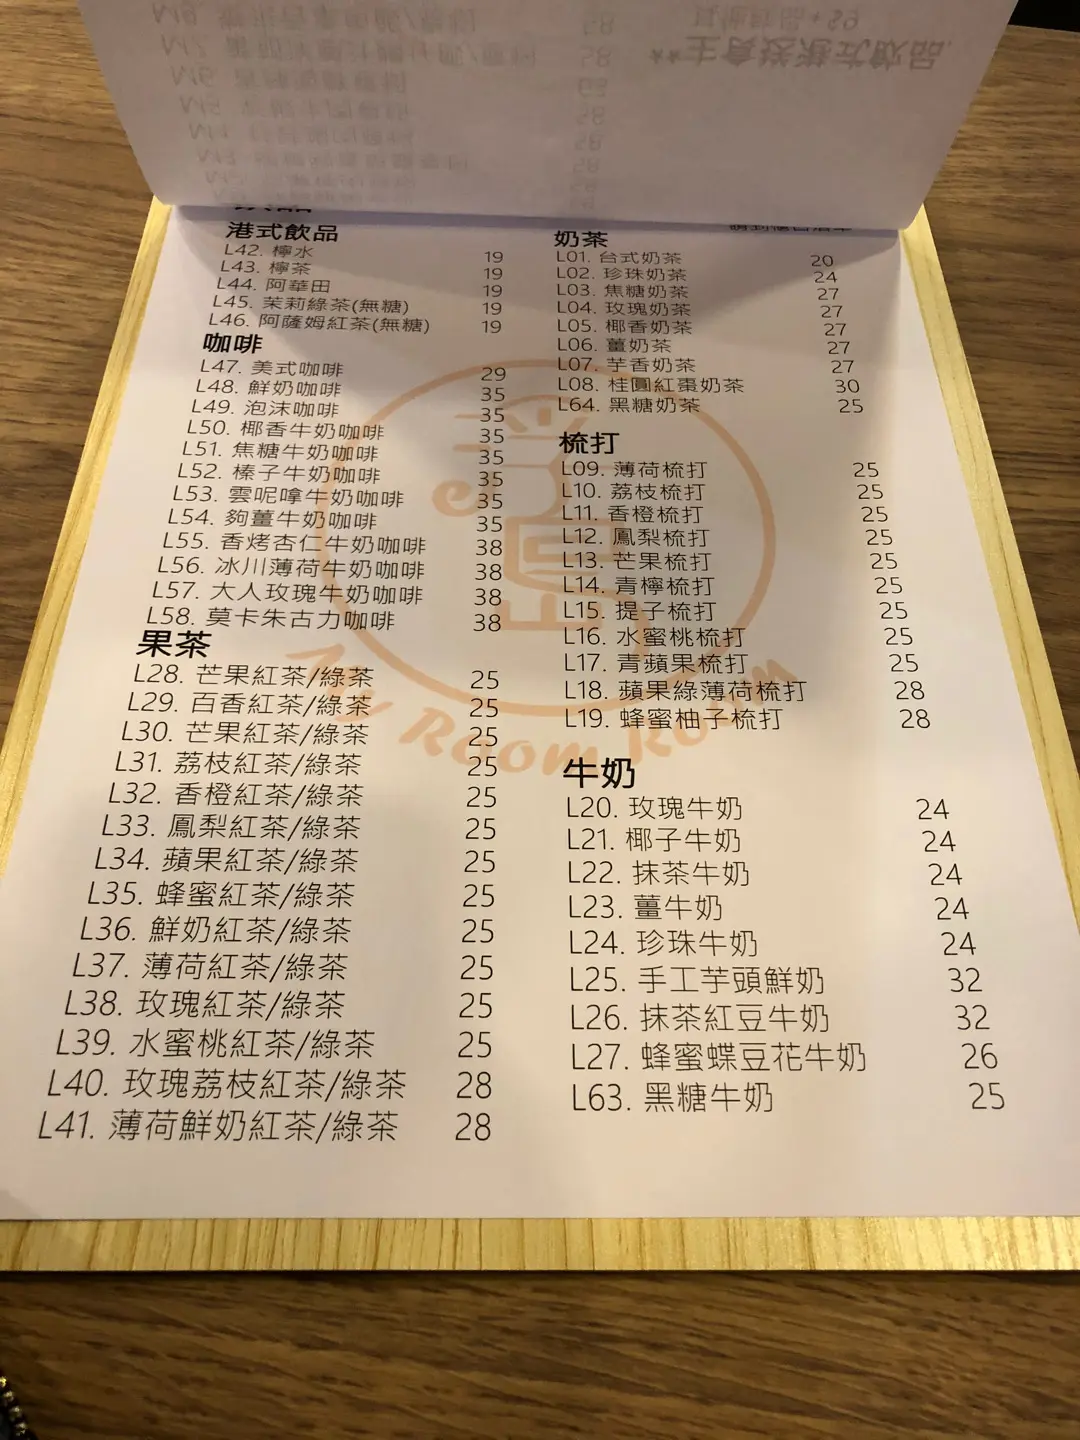 港式飲品
L42. 檸水 19
L43. 檸茶 19
L44. 阿華田 19
L45. 茉莉綠茶(無糖) 19
L46. 阿薩姆紅茶(無糖) 19
咖啡
L47. 美式咖啡 29
L48. 鮮奶咖啡 35
L49. 泡沫咖啡 35
L50. 椰香牛奶咖啡 35
L51. 焦糖牛奶咖啡 35
L52. 榛子牛奶咖啡 35
L53. 雲呢嗱牛奶咖啡 35
L54. 夠薑牛奶咖啡 35
L55. 香烤杏仁牛奶咖啡 38
L56. 冰川薄荷牛奶咖啡 38
L57. 大人玫瑰牛奶咖啡 38
L58. 莫卡朱古力咖啡 38
果茶
L28. 芒果紅茶/綠茶 25
L29. 百香紅茶/綠茶 25
L30. 芒果紅茶/綠茶 25
L31. 荔枝紅茶/綠茶 25
L32. 香橙紅茶/綠茶 25
L33. 鳳梨紅茶/綠茶 25
L34. 蘋果紅茶/綠茶 25
L35. 蜂蜜紅茶/綠茶 25
L36. 鮮奶紅茶/綠茶 25
L37. 薄荷紅茶/綠茶 25
L38. 玫瑰紅茶/綠茶 25
L39. 水蜜桃紅茶/綠茶 25
L40. 玫瑰荔枝紅茶/綠茶 28
L41. 薄荷鮮奶紅茶/綠茶 28
奶茶
L01. 台式奶茶 20
L02. 珍珠奶茶 24
L03. 焦糖奶茶 27
L04. 玫瑰奶茶 27
L05. 椰香奶茶 27
L06. 薑奶茶 27
L07. 芋香奶茶 27
L08. 桂圓紅棗奶茶 30
L64. 黑糖奶茶 25
梳打
L09. 薄荷梳打 25
L10. 荔枝梳打 25
L11. 香橙梳打 25
L12. 鳳梨梳打 25
L13. 芒果梳打 25
L14. 青檸梳打 25
L15. 提子梳打 25
L16. 水蜜桃梳打 25
L17. 青蘋果梳打 25
L18. 蘋果綠薄荷梳打 28
L19. 蜂蜜柚子梳打 28
牛奶
L20. 玫瑰牛奶 24
L21. 椰子牛奶 24
L22. 抹茶牛奶 24
L23. 薑牛奶 24
L24. 珍珠牛奶 24
L25. 手工芋頭鮮奶 32
L26. 抹茶紅豆牛奶 32
L27. 蜂蜜蝶豆花牛奶 26
L63. 黑糖牛奶 25
My Room Room